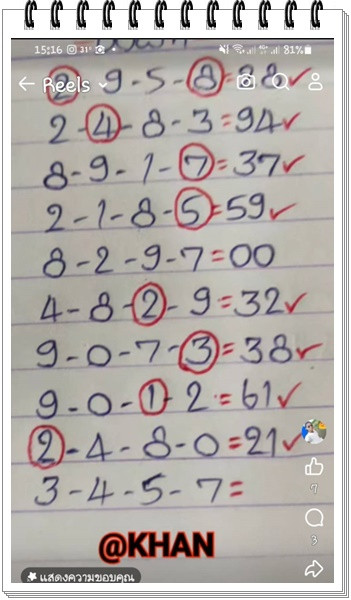 15:16 21° 81%
Reels
2-9-5-8=28✓
2-4-8-3=94✓
8-9-1-7=37✓
2-1-8-5=59✓
8-2-9-7=00
4-8-2-9=32✓
9-0-7-3=38✓
9-0-1-2=61✓
2-4-8-0=21✓
3-4-5-7=
7
3
@KHAN
แสดงความขอบคุณ